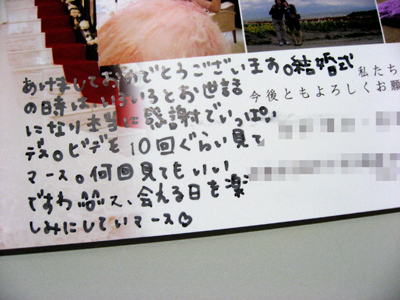 あけましておめでとうございます。結婚式
の時は、いろいろとお世話
になり本当に感謝でいっぱい
デス。ビデを10回ぐらい見て
マース。何回見てもいい
ですね ス、会える日を楽
しみにしていマース♡
私たち
今後ともよろしくお願